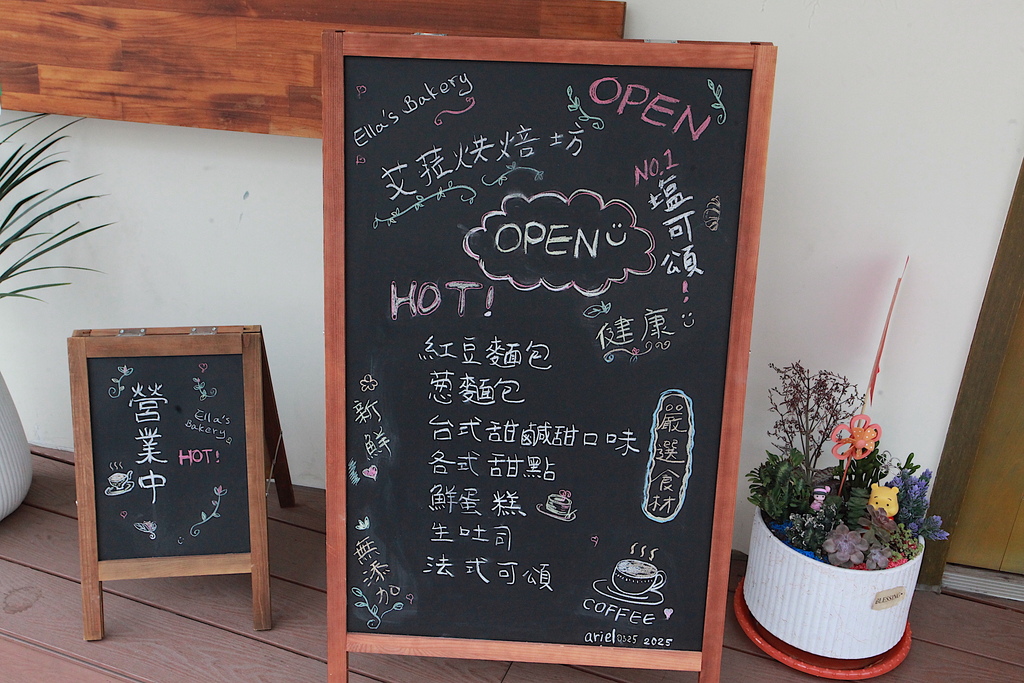 Ella's Bakery
OPEN
艾菈烘焙坊
NO.1
塩可頌!
OPEN
HOT!
健康
紅豆麵包
葱麵包
台式甜鹹甜口味
各式甜點
鮮蛋糕
生吐司
法式可頌
新鮮
無添加
嚴選食材
COFFEE
ariel0325 2025
營業中
Ella's
Bakery
HOT!
BLESSING